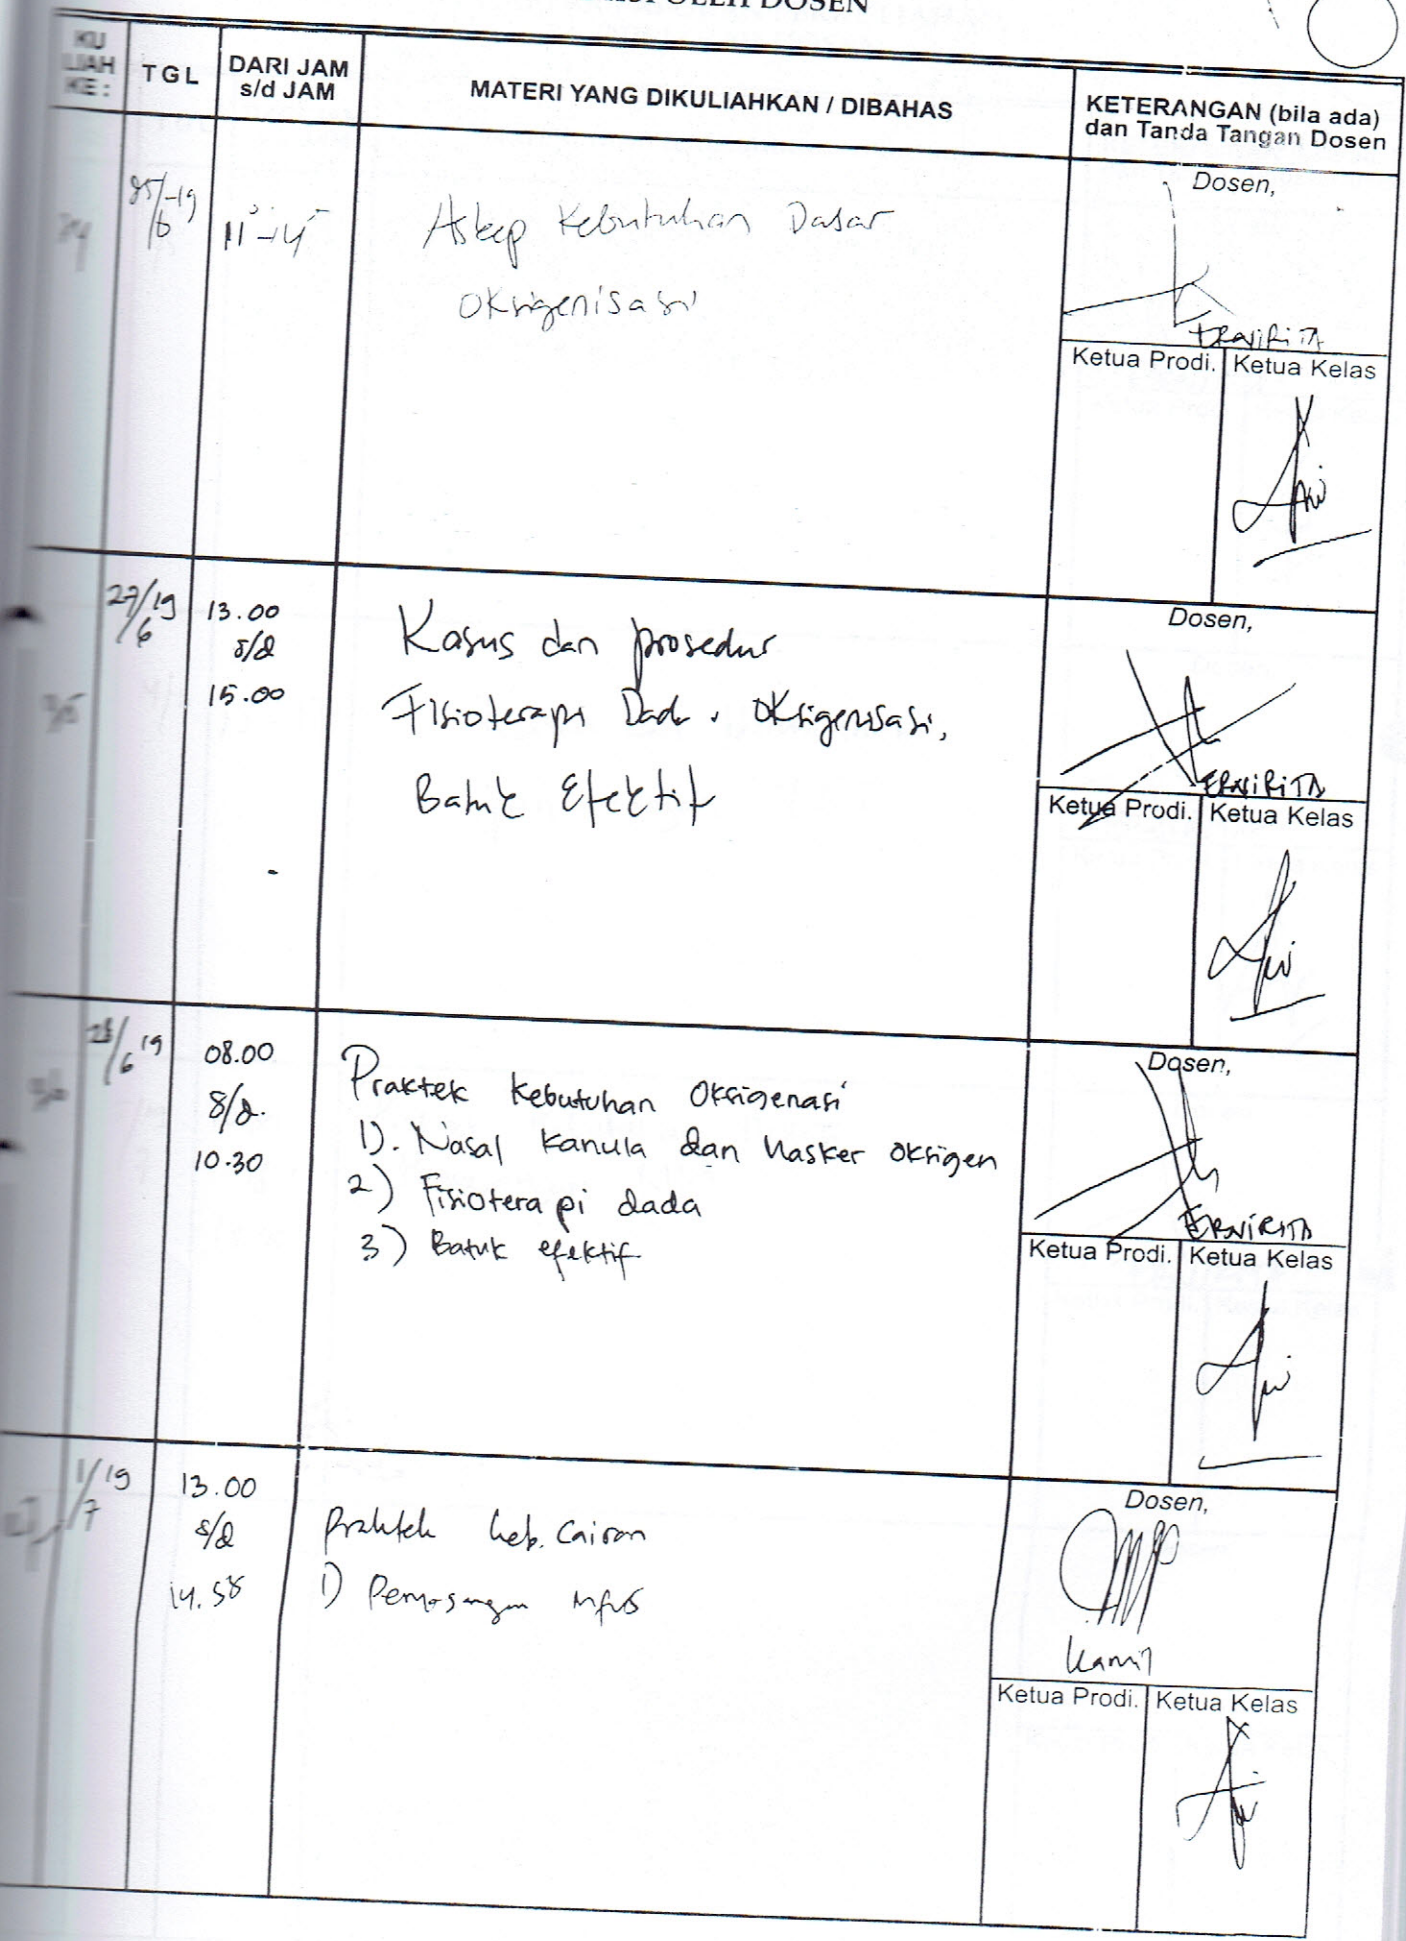 OLEH DOSEN
KU
LIAH
KE :
TGL
DARI JAM
s/d JAM
MATERI YANG DIKULIAHKAN / DIBAHAS
KETERANGAN (bila ada)
dan Tanda Tangan Dosen
25/6-19
Askep Kebutuhan Dasar
Oksigenisasi
Dosen,
ERNIRITA
Ketua Prodi.
Ketua Kelas
27/6 19
13.00
s/d
15.00
Kasus dan prosedur
Fisioterapi Dada, Oksigenisasi,
Batuk Efektif
Dosen,
ERNIRITA
Ketua Prodi.
Ketua Kelas
28/6 19
08.00
s/d.
10.30
Praktek Kebutuhan Oksigenasi
1). Nasal Kanula dan Masker Oksigen
2) Fisioterapi dada
3) Batuk efektif
Dosen,
ERNIRITA
Ketua Prodi.
Ketua Kelas
1/7 19
13.00
s/d
14.58
Praktek keb. Cairan
1) Pemasangan infus
Dosen,
Kamil
Ketua Prodi.
Ketua Kelas